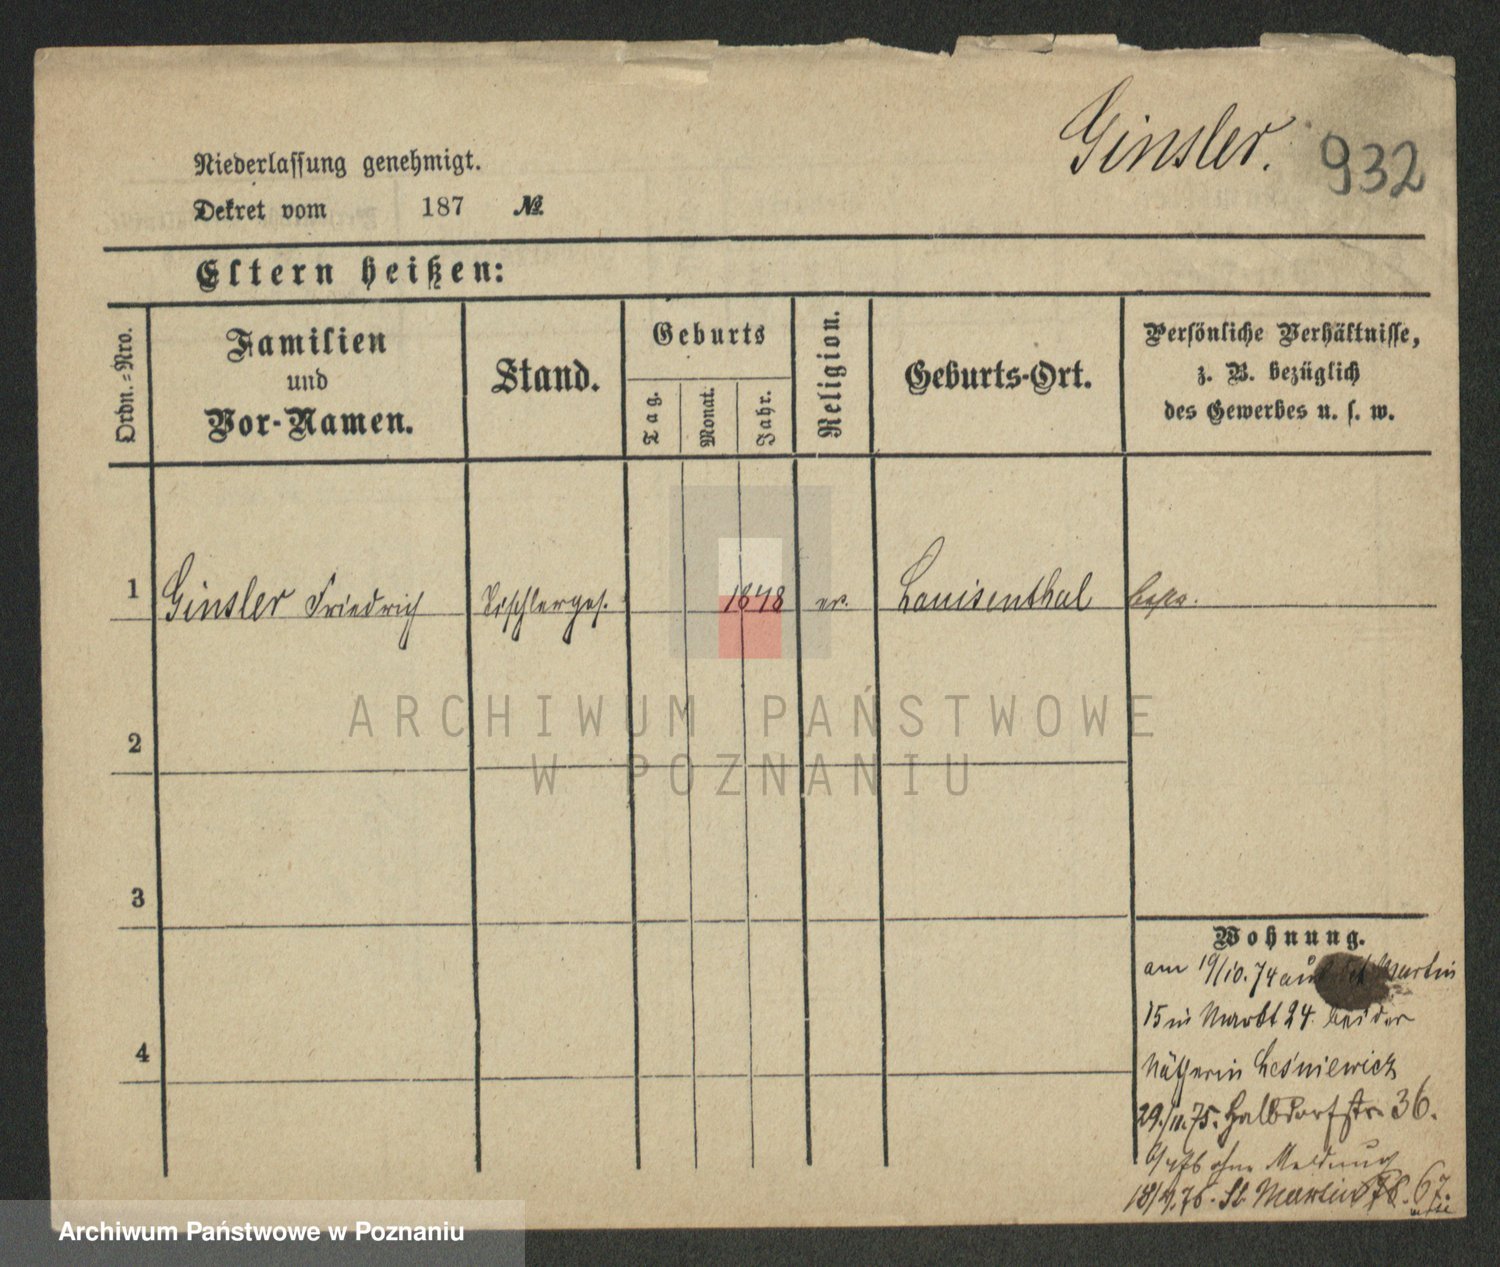 Ginsler. 932
Niederlassung genehmigt.
Dekret vom 187 №
Eltern heißen:
Ordn.=Nro.
Familien
und
Vor-Namen.
Stand.
Geburts
Tag.
Monat.
Jahr.
Religion.
Geburts-Ort.
Persönliche Verhältnisse,
z. B. bezüglich
des Gewerbes u. s. w.
1 Ginsler Friedrich Tischlerges. 1848 ev. Louisenthal
ARCHIWUM PAŃSTWOWE
W POZNANIU
2
3
4
Wohnung.
am 19/10. 74 aus St Martin
15 in Markt 24. bei der
Nätherin Leśniewicz
29./11. 75. Halbdorfstr. 36.
ohne Meldung
St. Martin 67.
Archiwum Państwowe w Poznaniu